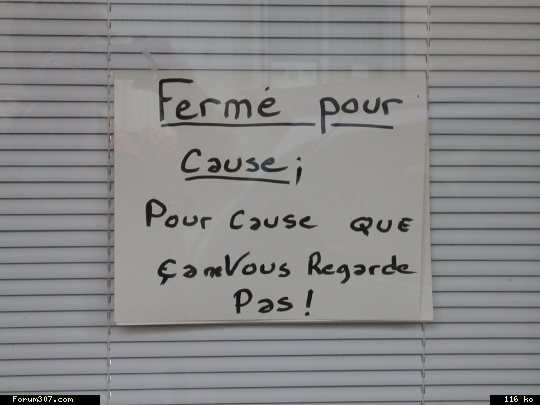 Fermé pour
cause;
Pour cause que
ça ne Vous Regarde
Pas!
Forum307.com
116 ko